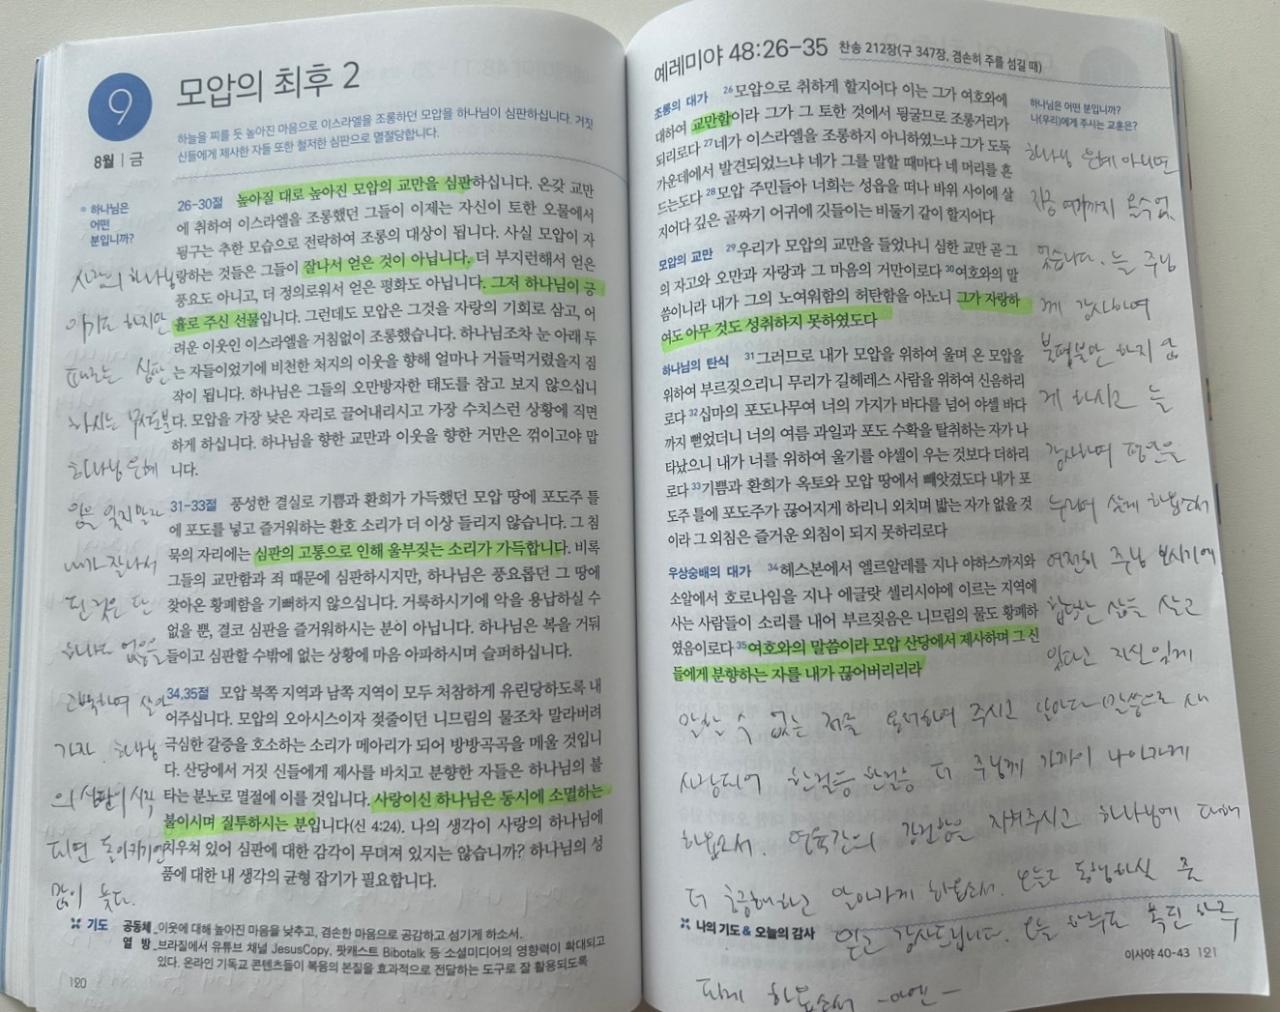 9
8월 | 금
모압의 최후 2
하늘을 찌를 듯 높아진 마음으로 이스라엘을 조롱하던 모압을 하나님이 심판하십니다. 거짓
신들에게 제사한 자들 또한 철저한 심판으로 멸절당합니다.
하나님은
어떤
분입니까?
26-30절 높아질 대로 높아진 모압의 교만을 심판하십니다. 온갖 교만
에 취하여 이스라엘을 조롱했던 그들이 이제는 자신이 토한 오물에서
뒹구는 추한 모습으로 전락하여 조롱의 대상이 됩니다. 사실 모압이 자
랑하는 것들은 그들이 잘나서 얻은 것이 아닙니다. 더 부지런해서 얻은
풍요도 아니고, 더 정의로워서 얻은 평화도 아닙니다. 그저 하나님이 긍
휼로 주신 선물입니다. 그런데도 모압은 그것을 자랑의 기회로 삼고, 어
려운 이웃인 이스라엘을 거침없이 조롱했습니다. 하나님조차 눈 아래 두
는 자들이었기에 비천한 처지의 이웃을 향해 얼마나 거들먹거렸을지 짐
작이 됩니다. 하나님은 그들의 오만방자한 태도를 참고 보지 않으십니
다. 모압을 가장 낮은 자리로 끌어내리시고 가장 수치스런 상황에 직면
하게 하십니다. 하나님을 향한 교만과 이웃을 향한 거만은 꺾이고야 맙
니다.
31-33절 풍성한 결실로 기쁨과 환희가 가득했던 모압 땅에 포도주 틀
에 포도를 넣고 즐거워하는 환호 소리가 더 이상 들리지 않습니다. 그 침
묵의 자리에는 심판의 고통으로 인해 울부짖는 소리가 가득합니다. 비록
그들의 교만함과 죄 때문에 심판하시지만, 하나님은 풍요롭던 그 땅에
찾아온 황폐함을 기뻐하지 않으십니다. 거룩하시기에 악을 용납하실 수
없을 뿐, 결코 심판을 즐거워하시는 분이 아닙니다. 하나님은 복을 거둬
들이고 심판할 수밖에 없는 상황에 마음 아파하시며 슬퍼하십니다.
34,35절 모압 북쪽 지역과 남쪽 지역이 모두 처참하게 유린당하도록 내
어주십니다. 모압의 오아시스이자 젖줄이던 니므림의 물조차 말라버려
극심한 갈증을 호소하는 소리가 메아리가 되어 방방곡곡을 메울 것입니
다. 산당에서 거짓 신들에게 제사를 바치고 분향한 자들은 하나님의 불
타는 분노로 멸절에 이를 것입니다. 사랑이신 하나님은 동시에 소멸하는
불이시며 질투하시는 분입니다(신 4:24). 나의 생각이 사랑의 하나님에
치우쳐 있어 심판에 대한 감각이 무뎌져 있지는 않습니까? 하나님의 성
품에 대한 내 생각의 균형 잡기가 필요합니다.
사랑의 하나님
이기도 하지만
때로는 심판
하시는
하나님 은혜
임을 잊지말라
내가 잘나서
된 것은 단
하나도 없음을
고백하며 살아
가자. 하나님
의 심판이 시작
되면 돌이키기엔
많이 늦다.
기도 공동체_이웃에 대해 높아진 마음을 낮추고, 겸손한 마음으로 공감하고 섬기게 하소서.
열 방_브라질에서 유튜브 채널 JesusCopy, 팟캐스트 Bibotalk 등 소셜미디어의 영향력이 확대되고
있다. 온라인 기독교 콘텐츠들이 복음의 본질을 효과적으로 전달하는 도구로 잘 활용되도록
120
예레미야 48:26-35 찬송 212장(구 347장, 겸손히 주를 섬길 때)
조롱의 대가 26모압으로 취하게 할지어다 이는 그가 여호와에
대하여 교만함이라 그가 그 토한 것에서 뒹굴므로 조롱거리가
되리로다 27네가 이스라엘을 조롱하지 아니하였느냐 그가 도둑
가운데에서 발견되었느냐 네가 그를 말할 때마다 네 머리를 흔
드는도다 28모압 주민들아 너희는 성읍을 떠나 바위 사이에 살
지어다 깊은 골짜기 어귀에 깃들이는 비둘기 같이 할지어다
모압의 교만 29우리가 모압의 교만을 들었나니 심한 교만 곧 그
의 자고와 오만과 자랑과 그 마음의 거만이로다 30여호와의 말
씀이니라 내가 그의 노여워함의 허탄함을 아노니 그가 자랑하
여도 아무 것도 성취하지 못하였도다
하나님의 탄식 31그러므로 내가 모압을 위하여 울며 온 모압을
위하여 부르짖으리니 무리가 길헤레스 사람을 위하여 신음하리
로다 32십마의 포도나무여 너의 가지가 바다를 넘어 야셀 바다
까지 뻗었더니 너의 여름 과일과 포도 수확을 탈취하는 자가 나
타났으니 내가 너를 위하여 울기를 야셀이 우는 것보다 더하리
로다 33기쁨과 환희가 옥토와 모압 땅에서 빼앗겼도다 내가 포
도주 틀에 포도주가 끊어지게 하리니 외치며 밟는 자가 없을 것
이라 그 외침은 즐거운 외침이 되지 못하리로다
우상숭배의 대가 34헤스본에서 엘르알레를 지나 야하스까지와
소알에서 호로나임을 지나 에글랏 셀리시야에 이르는 지역에
사는 사람들이 소리를 내어 부르짖음은 니므림의 물도 황폐하
였음이로다 35여호와의 말씀이라 모압 산당에서 제사하며 그 신
들에게 분향하는 자를 내가 끊어버리리라
하나님은 어떤 분입니까?
나(우리)에게 주시는 교훈은?
하나님 은혜 아니면
지금 여기까지 올수 없
었습니다. 늘 주님
께 감사하며
불평불만 하지 않
게 하시고 늘
감사하며 평안을
누리며 살게 하옵소서
여전히 주님 보시기에
합당한 삶을 살고
있다고 자신있게
말할 수 없는 저를 용서하여 주시고 날마다 말씀으로 새
사람되어 한걸음 한걸음 더 주님께 가까이 나아가게
하옵소서. 영육간의 강건함을 지켜주시고 하나님에 대해
더 궁금해하고 알아가게 하옵소서. 오늘도 동행하실 줄
믿고 감사드립니다. 오늘 하루도 복된 하루
되게 하옵소서 -아멘-
나의 기도 & 오늘의 감사
이사야 40-43 121